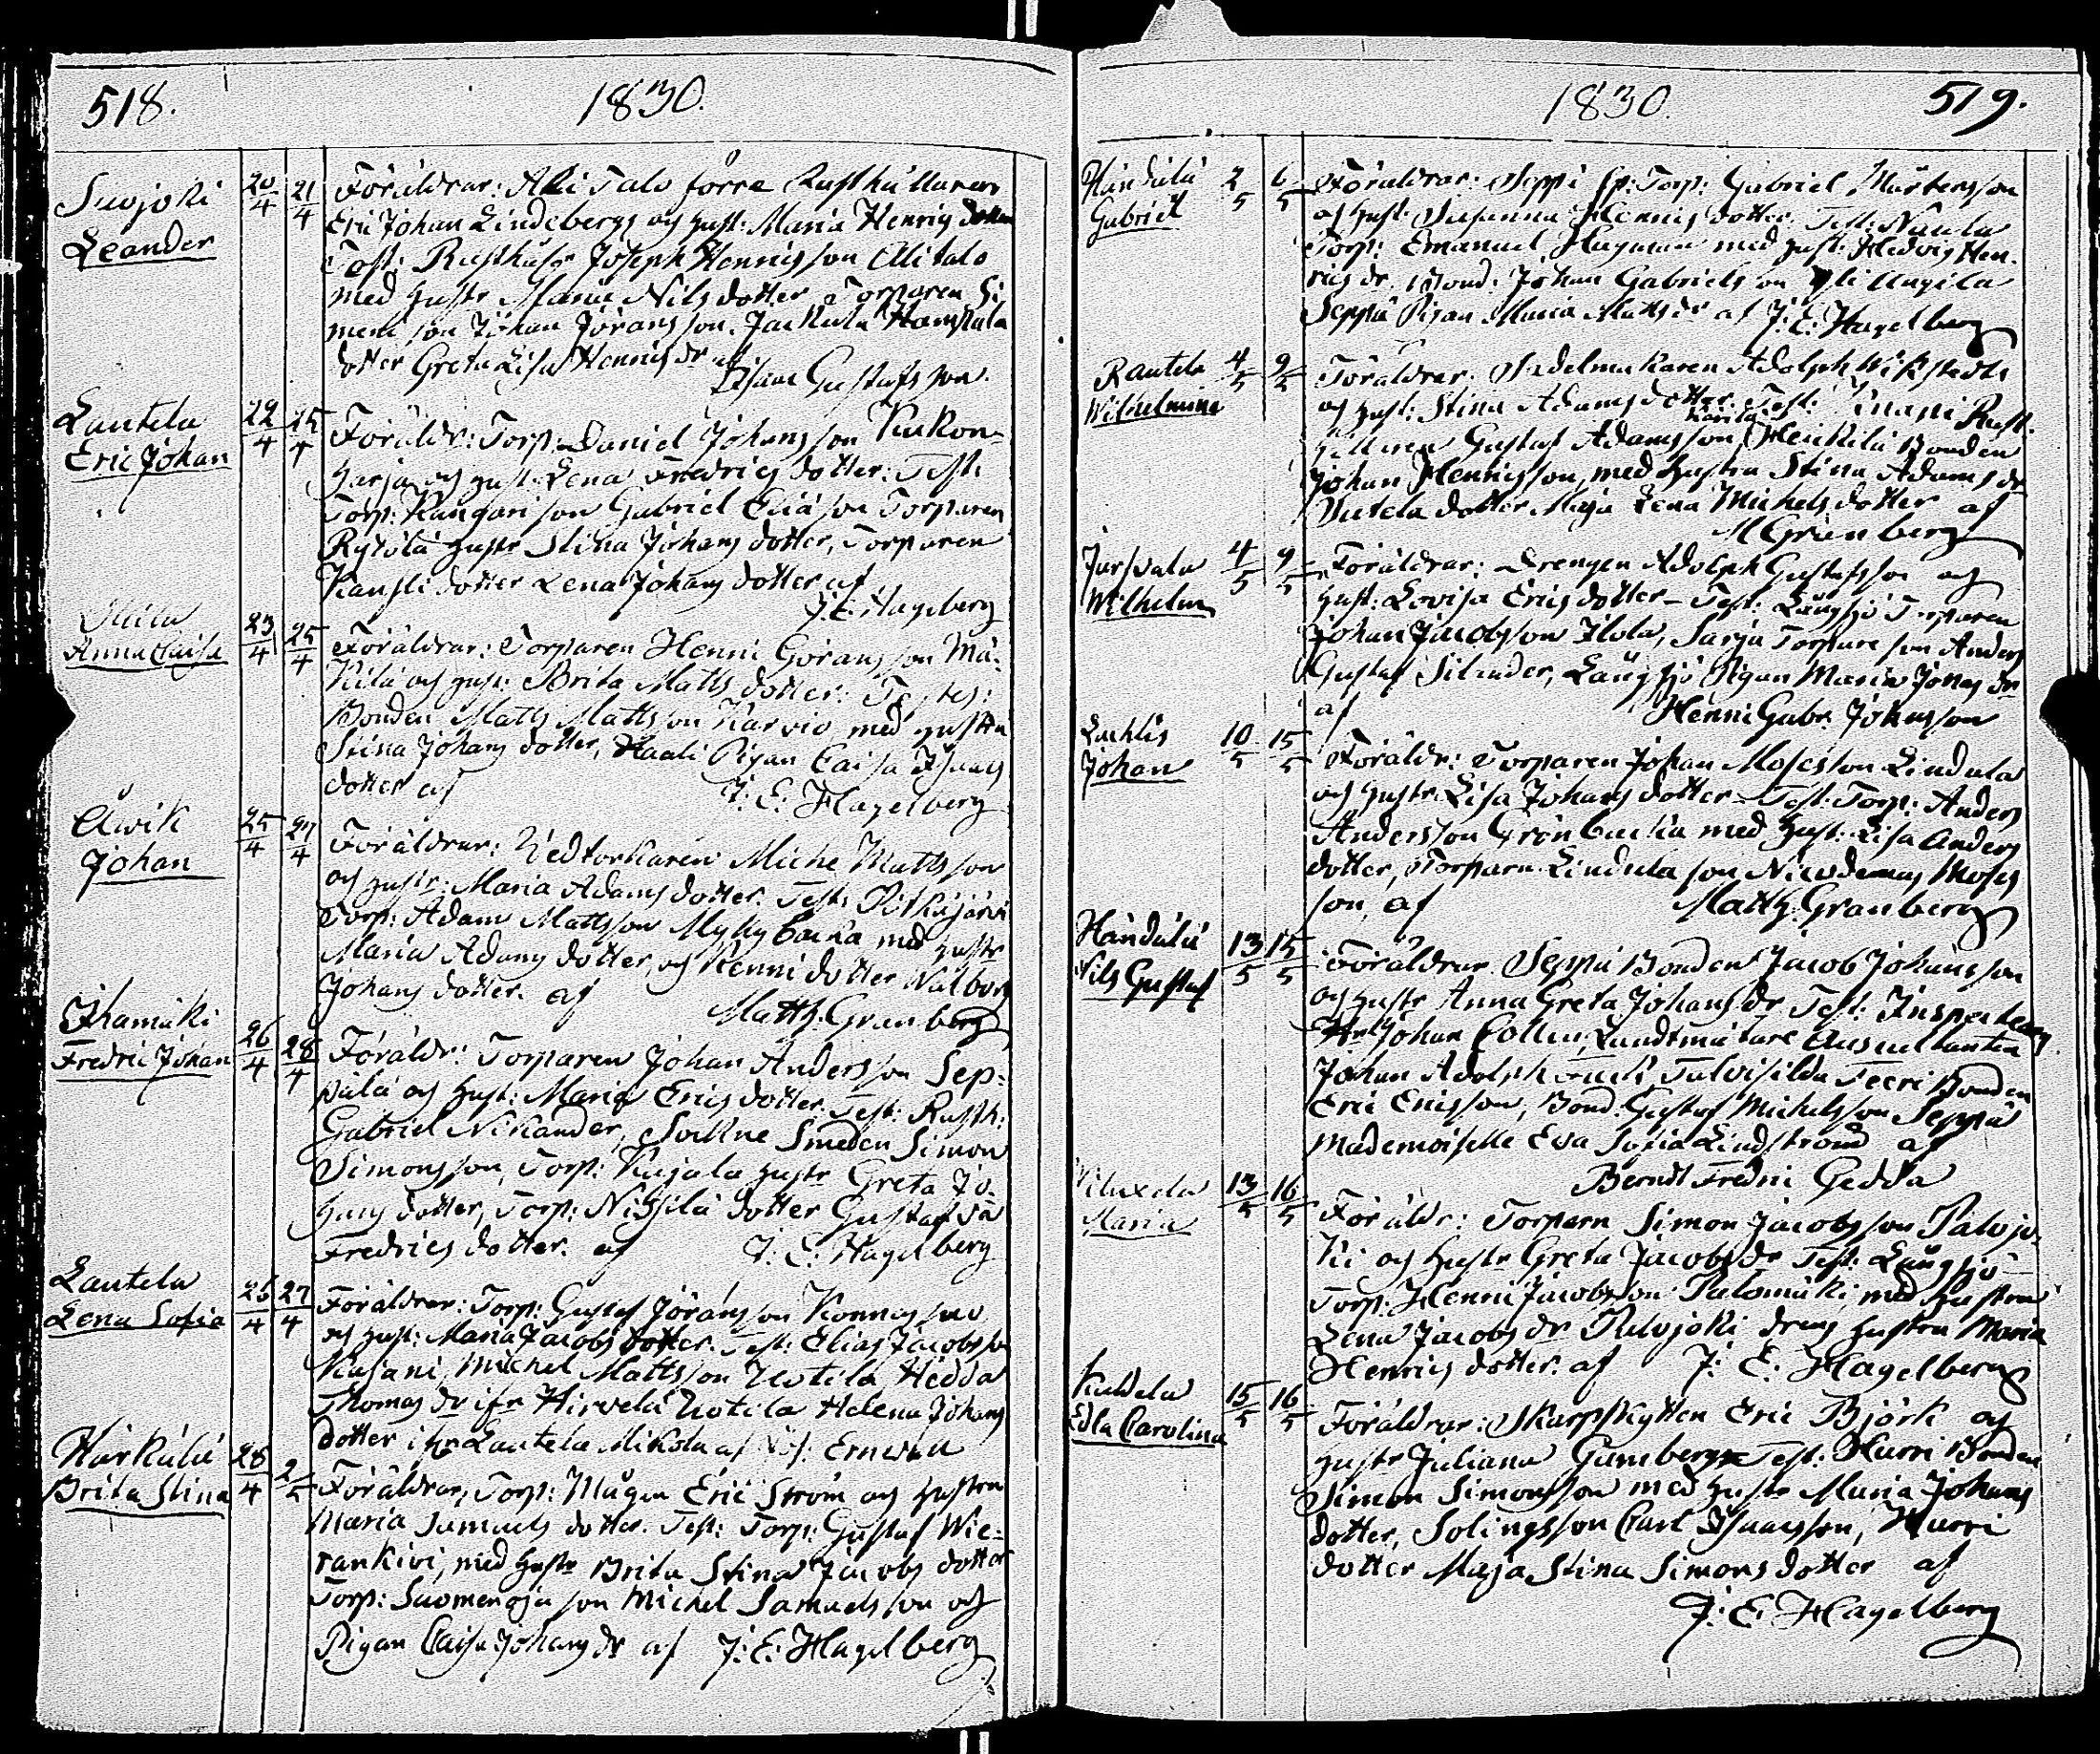 518. 1830.
Suojoki Leander 20/4 21/4
Föräldrar: Ali Talo förre Rusthållaren
Eric Johan Lindebergs och hust: Maria Henrics dotter
Test: Rusthåll: Joseph Henricsson Alitalo
med hustr Maria Nils dotter, Torparen Si
meni son Johan Göransson, Jackula
dotter Greta Lisa Henrics dr af
Isaac Gustafsson.
Lautela Eric Johan 22/4 25/4
Föräldr: Torp. Daniel Johansson Kukon-
harja och hust: Lena Fredrics dotter: Test:
Torp: Kangari son Gabriel Eliason Torparen
Rytölä hustr Stina Johans dotter, Torparen
Kangli dotter Lena Johans dotter af
J. E: Hagelberg
Anna Caisa 23/4 25/4
Föräldrar: Torparen Henric Göransson Mä-
kilä och hust: Brita Matts dotter: Testes:
Bonden Matts Mattsson Karvio med hustru
Stina Johans dotter, Haali Pigan Caisa Isaacs
dotter af J: E: Hagelberg
Awik Johan 25/4 27/4
Föräldrar: Wedtorkaren Michel Mattsson
och hustr: Maria Adams dotter. Test: Pitkäjärvi
Torp: Adam Mattsson Myllybacka med hustr
Maria Adams dotter, och Kenni dotter Walborg
Johans dotter. af Matth: Granberg
Ihamäki Fredric Johan 26/4 28/4
Föräldr: Torparen Johan Andersson Sep-
pälä och hust: Maria Erics dotter. Test: Rusth:
Gabriel Nikander, Sockne Smeden Simon
Simonsson, Torp: Kujala hustr Greta Jo-
hans dotter, Torp: Nissilä dotter Gustafva
Fredrics dotter. af J: E: Hagelberg
Lautela Lena Sofia 26/4 27/4
Föräldrar: Torp: Gustaf Göransson Konnossuo
och hust: Maria Jacobs dotter. Test: Elias Jacobsson
Kujani, Michel Mattsson Uotila Hedda
Thomas dr ifr Hirvelä Uotila Helena Johans
dotter ifr Lautela Mikola af
Härkälä Brita Stina 28/4 2/5
Föräldrar, Torp: Mågen Eric Ström och hustrun
Maria Samuels dotter. Test: Torp: Gustaf Wie-
rankivi, med hustr Brita Stina Jacobs dotter
Torp: Suomenoja son Michel Samuelsson och
Pigan Caisa Johans dr af J: E: Hagelberg
1830. 519.
Händälä Gabriel 2/5 6/5
Föräldrar: Seppä Sp: Torp: Gabriel Mårtensson
och hust: Susanna Henrics dotter. Test: Naula
Torp: Emanuel Hagman med hust: Hedvig Hen-
rics dr. Bond: Johan Gabrielsson Yli
Seppä Pigan Maria Matts dr af J: E: Hagelberg
Rautela Wilhelmina 4/5 9/5
Föräldrar. Sadelmakaren Adolph Wikstedts
och hust: Stina Adams dotter. Test: Rust-
hållaren Gustaf Adamsson Heickilä Bonden
Johan Henricsson, med hustru Stina Adams dr
Sutela dotter Maja Lena Michels dotter af
M Granberg
Jursvala Wilhelm 4/5 9/5
Föräldrar: Drengen Adolph Gustafsson och
hust: Lovisa Erics dotter - Test: Långsjö Torparen
Johan Jacobsson Ilola, Sarja Torpare son Anders
Gustaf Silander, Långsjö Pigan Maria Jonas dr
af Henric Gabr: Johnsson
Lachlis Johan 10/5 15/5
Föräldr: Torparen Johan Mosesson Lindula
och hustr Lisa Johans dotter - Test: Torp: Anders
Andersson Grönbacka med hust: Lisa Anders
dotter, Torparen Lindula son Nicodemus Moses
son, af Matth: Granberg
Händälä Nils Gustaf 13/5 15/5
Föräldrar. Seppä Bonden Jacob Johansson
och hustr Anna Greta Johans dr Test: Inspectoren
Hr Johan Collin, Landtmätare Auscultanten
Johan Adolph Talvisilda Teeri Bonden
Eric Ericsson, Bond. Gustaf Michelsson Seppä
Mademoiselle Eva Sofia Lindström af
Berndt Fredric Gedda
Viluxela Maria 13/5 16/5
Föräldr: Torparn Simon Jacobsson Palojo-
ki och hustr Greta Jacobs dr Test: Långsjö
Torp: Henric Jacobsson Palomäki, med hustrun
Lena Jacobs dr Palojoki dreng hustrun Maria
Henrics dotter. af J: E: Hagelberg
Kuldela Edla Carolina 15/5 16/5
Föräldrar: Skarpskytten Eric Björk och
hustr Juliana Gumberg Test: Hurri Bonden
Simon Simonsson med hustr Maria Johans
dotter, Solings son Carl Isaacsson, Hurri
dotter Maja Stina Simons dotter af
J: E: Hagelberg